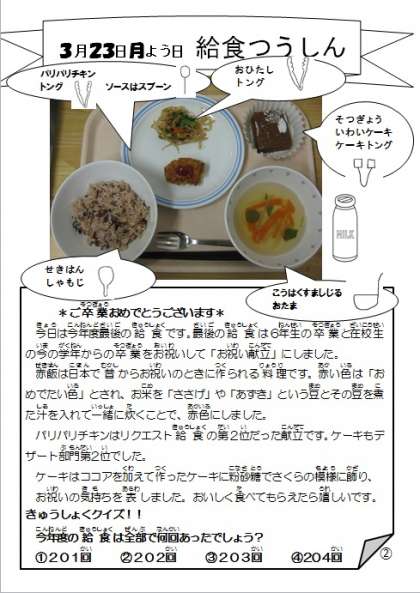 3月23日月よう日 給食つうしん
パリパリチキン
トング ソースはスプーン
おひたし
トング
そつぎょう
いわいケーキ
ケーキトング
MILK
せきはん
しゃもじ
こうはくすましじる
おたま
＊ご卒業おめでとうございます＊
今日は今年度最後の給食です。最後の給食は6年生の卒業と在校生
の今の学年からの卒業をお祝いして「お祝い献立」にしました。
赤飯は日本で昔からお祝いのときに作られる料理です。赤い色は「お
めでたい色」とされ、お米を「ささげ」や「あずき」という豆とその豆を煮
た汁を入れて一緒に炊くことで、赤色にしました。
パリパリチキンはリクエスト給食の第2位だった献立です。ケーキもデ
ザート部門第2位でした。
ケーキはココアを加えて作ったケーキに粉砂糖でさくらの模様に飾り、
お祝いの気持ちを表しました。おいしく食べてもらえたら嬉しいです。
きゅうしょくクイズ！！
今年度の給食は全部で何回あったでしょう？
①201回 ②202回 ③203回 ④204回
②